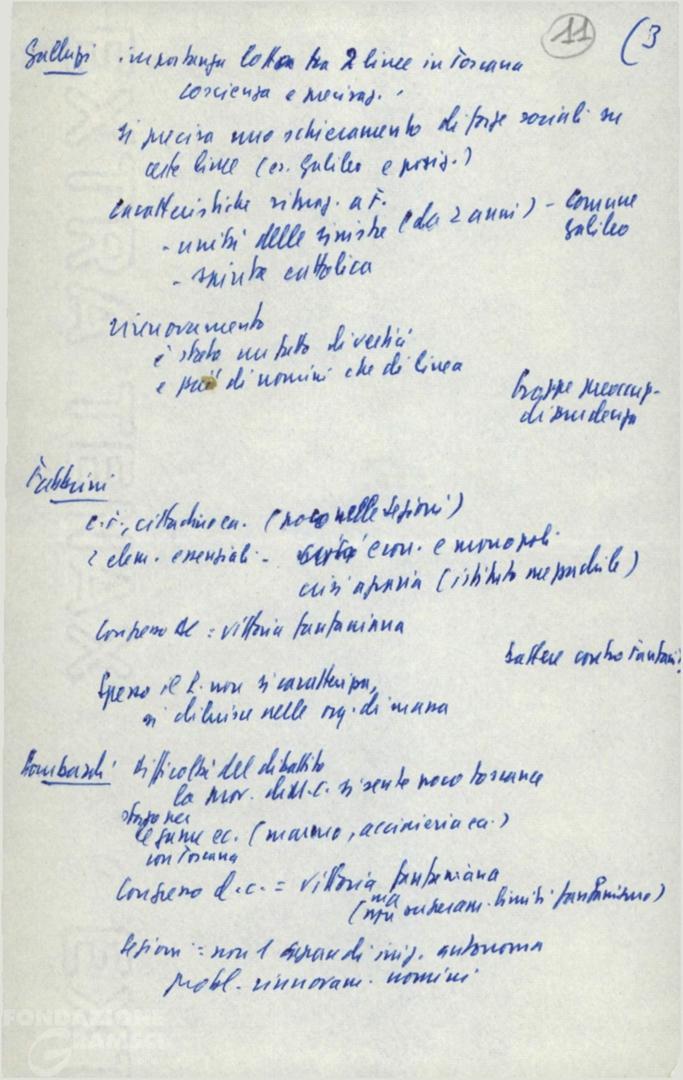 11 (3
Galluzzi importanza lotta tra 2 linee in Toscana
coscienza e precisaz.
si precisa uno schieramento di forze sociali su
certe linee (es. Galileo e posiz.)
caratteristiche situaz. a F.
- unità delle sinistre (da 2 anni) - comune Galileo
- spinta cattolica
rinnovamento
è stato un fatto di vertici
e più di uomini che di linea
troppe preoccup.
di prudenza
Fabbrini
c.f., cittadino ecc. (poco nelle sezioni)
2 elem. essenziali - econ. e monopoli
crisi agraria (istituto mezzadrile)
Congresso DC = vittoria fanfaniana
battere contro Fanfani!
Spesso il P. non si caratterizza,
si diluisce nelle org. di massa
Lombardi difficoltà del dibattito
la mov. della m.c. si sente poco toscana
legame ec. (marmo, acciaieria ecc.)
con Toscana
Congresso d.c. = vittoria fanfaniana
(ma limiti fanfanismo)
Sezioni = non 1 di iniz. autonoma
probl. rinnovam. uomini
FONDAZIONE
GRAMSCI